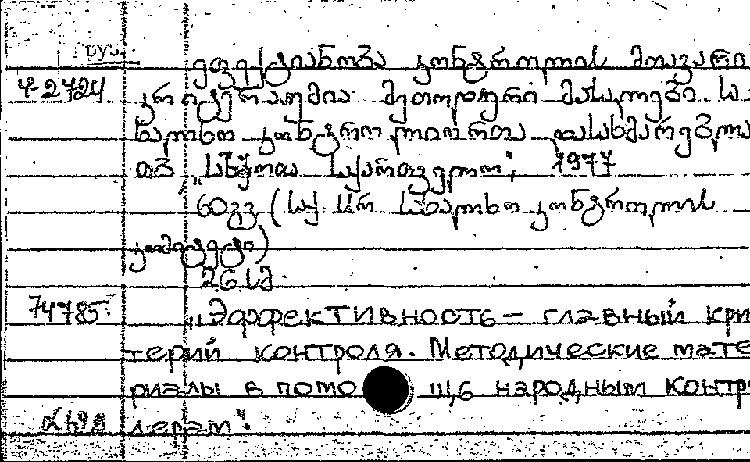 груз.
ეფექტიანობა კონტროლის მთავარი
ч-2724 კრიტერიუმია. მეთოდური მასალები სა
ხალხო კონტროლიორთა დასახმარებლა
თბ „საბჭოთა საქართველო“, 1977
60გვ (საქ. სსრ სახალხო კონტროლის
კომიტეტი)
26 სმ
74785 „Эффективность – главный кри
терий контроля. Методические мате
риалы в помо щь народным контр
лерам“.